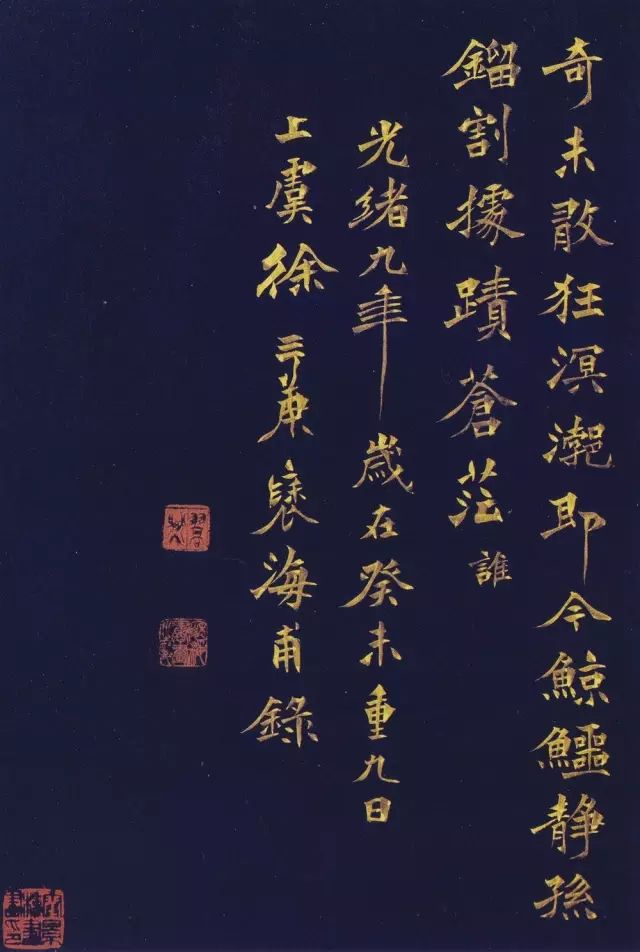 奇未敢狂溟即今鯨鱷靜孫
鎦割據蹟蒼茫誰
光緒九年歲在癸未重九日
上虞徐三庚褎海甫錄